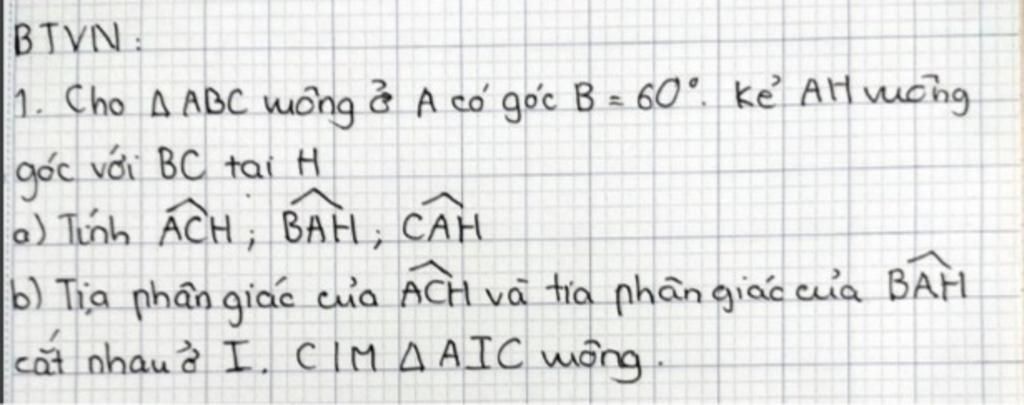 BTVN:
1. Cho Δ ABC vuông ở A có góc B = 60°. Kẻ AH vuông
góc với BC tại H
a) Tính \widehat{ACH}; \widehat{BAH}; \widehat{CAH}
b) Tia phân giác của \widehat{ACH} và tia phân giác của \widehat{BAH}
cắt nhau ở I. C/M Δ AIC vuông.